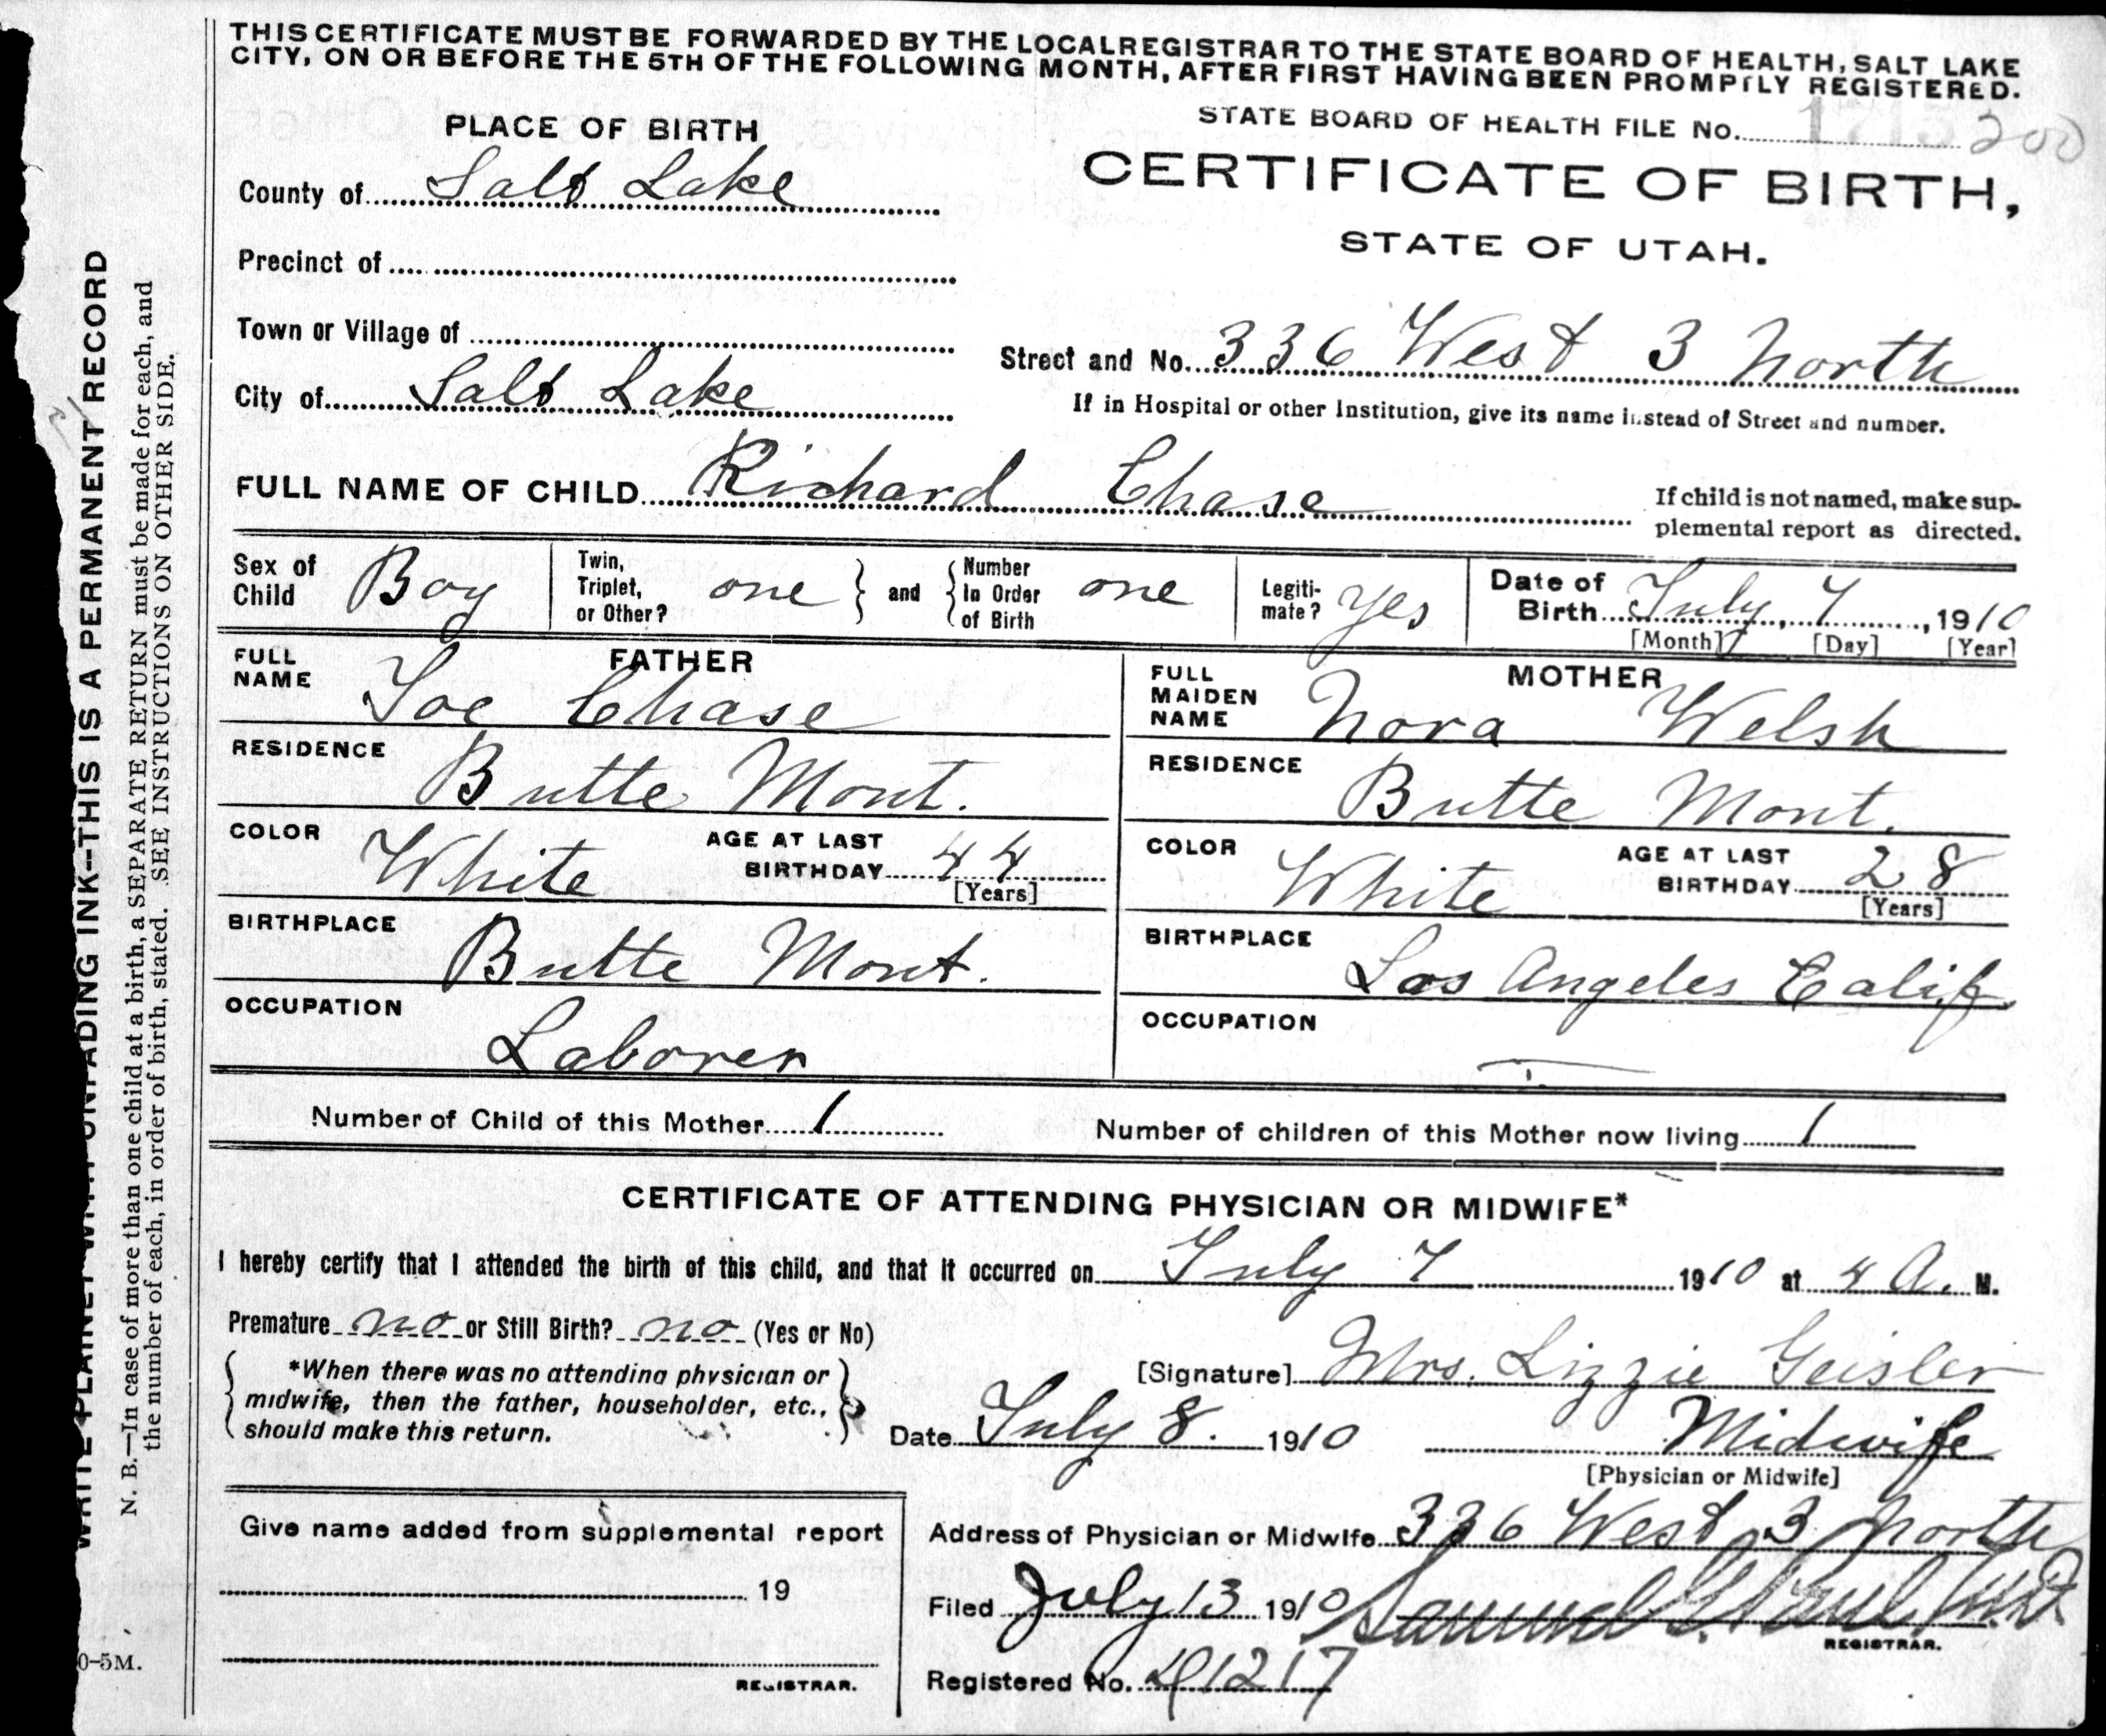 THIS CERTIFICATE MUST BE FORWARDED BY THE LOCAL REGISTRAR TO THE STATE BOARD OF HEALTH, SALT LAKE
CITY, ON OR BEFORE THE 5TH OF THE FOLLOWING MONTH, AFTER FIRST HAVING BEEN PROMPTLY REGISTERED.
STATE BOARD OF HEALTH FILE NO. 200
PLACE OF BIRTH
CERTIFICATE OF BIRTH,
STATE OF UTAH.
County of Salt Lake
Precinct of
Town or Village of
Street and No. 336 West 3 North
City of Salt Lake
If in Hospital or other Institution, give its name instead of Street and number.
FULL NAME OF CHILD Richard Chase
If child is not named, make sup-
plemental report as directed.
Sex of Child Boy
Twin, Triplet, or Other? one } and { Number In Order of Birth one
Legiti-mate? Yes
Date of Birth July, 7, 1910
[Month] [Day] [Year]
FATHER
FULL NAME Joe Chase
RESIDENCE Butte Mont.
COLOR White AGE AT LAST BIRTHDAY 44
[Years]
BIRTHPLACE Butte Mont.
OCCUPATION Laborer
MOTHER
FULL MAIDEN NAME Nora Welsh
RESIDENCE Butte Mont.
COLOR White AGE AT LAST BIRTHDAY 28
[Years]
BIRTHPLACE Los Angeles Calif
OCCUPATION
Number of Child of this Mother 1 Number of children of this Mother now living 1
CERTIFICATE OF ATTENDING PHYSICIAN OR MIDWIFE*
I hereby certify that I attended the birth of this child, and that it occurred on July 7 1910 at 4 A. M.
Premature no or Still Birth? no (Yes or No)
*When there was no attending physician or
midwife, then the father, householder, etc.,
should make this return.
[Signature] Mrs. Lizzie Geisler
Date July 8. 1910 Midwife
[Physician or Midwife]
Give name added from supplemental report
19
REGISTRAR.
Address of Physician or Midwife 336 West 3 North
Filed July 13 1910 Samuel G. Paul M.D.
REGISTRAR.
Registered No. 1217
WRITE PLAINLY WITH UNFADING INK--THIS IS A PERMANENT RECORD
N. B.—In case of more than one child at a birth, a SEPARATE RETURN must be made for each, and
the number of each, in order of birth, stated. SEE INSTRUCTIONS ON OTHER SIDE.
0-5M.